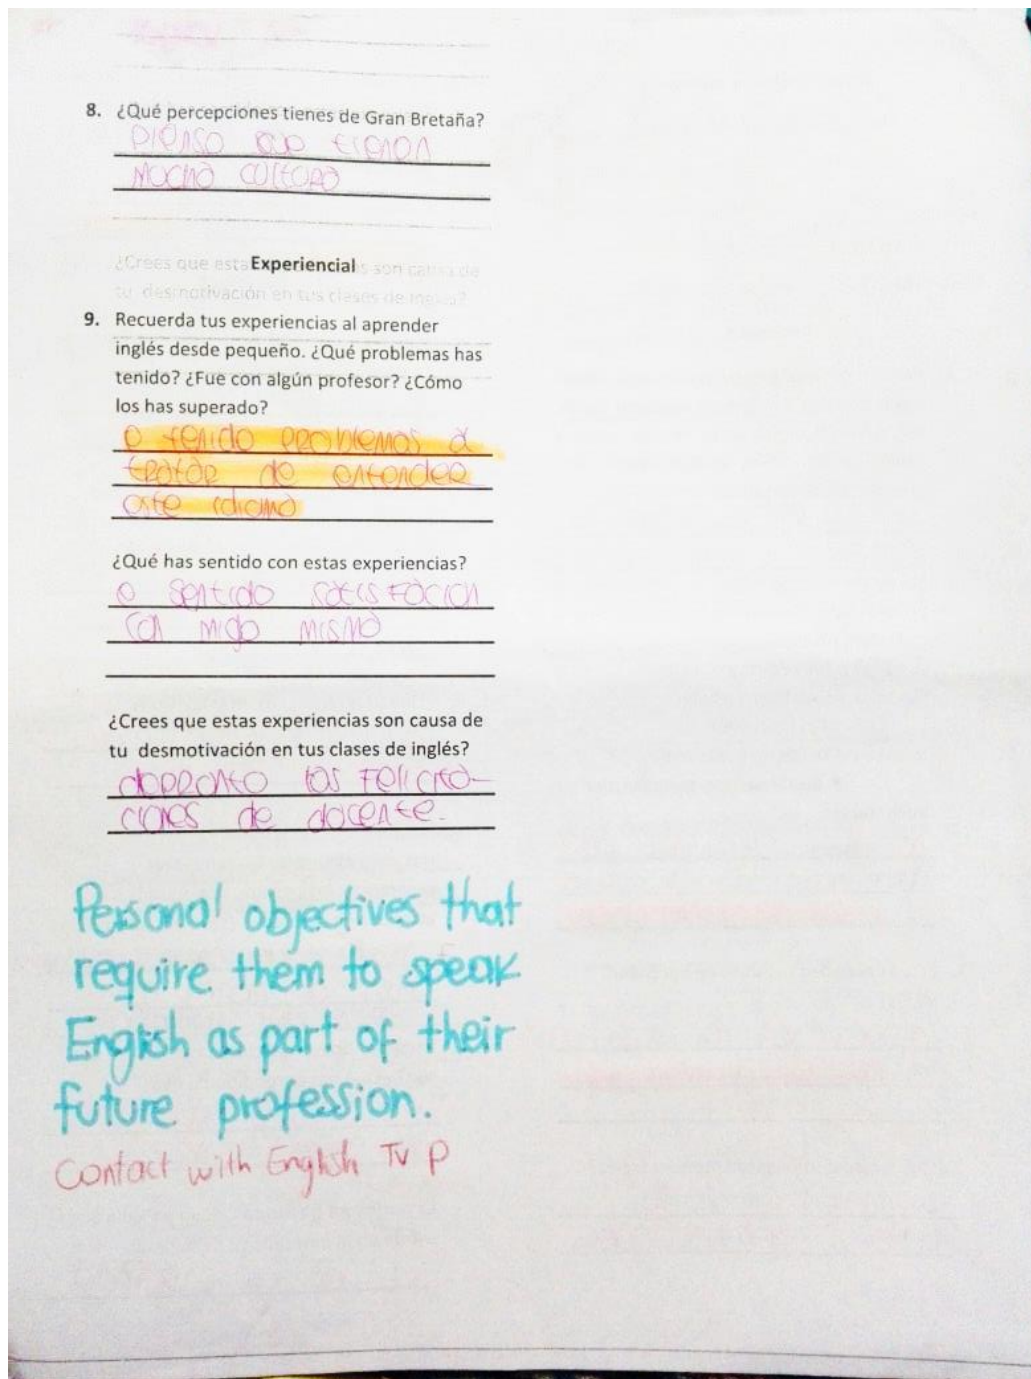 8. ¿Qué percepciones tienes de Gran Bretaña?
pienso que tienen
mucha cultura
Experiencial
¿Crees que estas experiencias son causa de
tu desmotivación en tus clases de inglés?
9. Recuerda tus experiencias al aprender
inglés desde pequeño. ¿Qué problemas has
tenido? ¿Fue con algún profesor? ¿Cómo
los has superado?
e tenido problemas a
tratar de entender
este idioma
¿Qué has sentido con estas experiencias?
e sentido satisfacion
con migo mismo
¿Crees que estas experiencias son causa de
tu desmotivación en tus clases de inglés?
depronto las felicita-
ciones de docente.
Personal objectives that
require them to speak
English as part of their
future profession.
Contact with English TV P